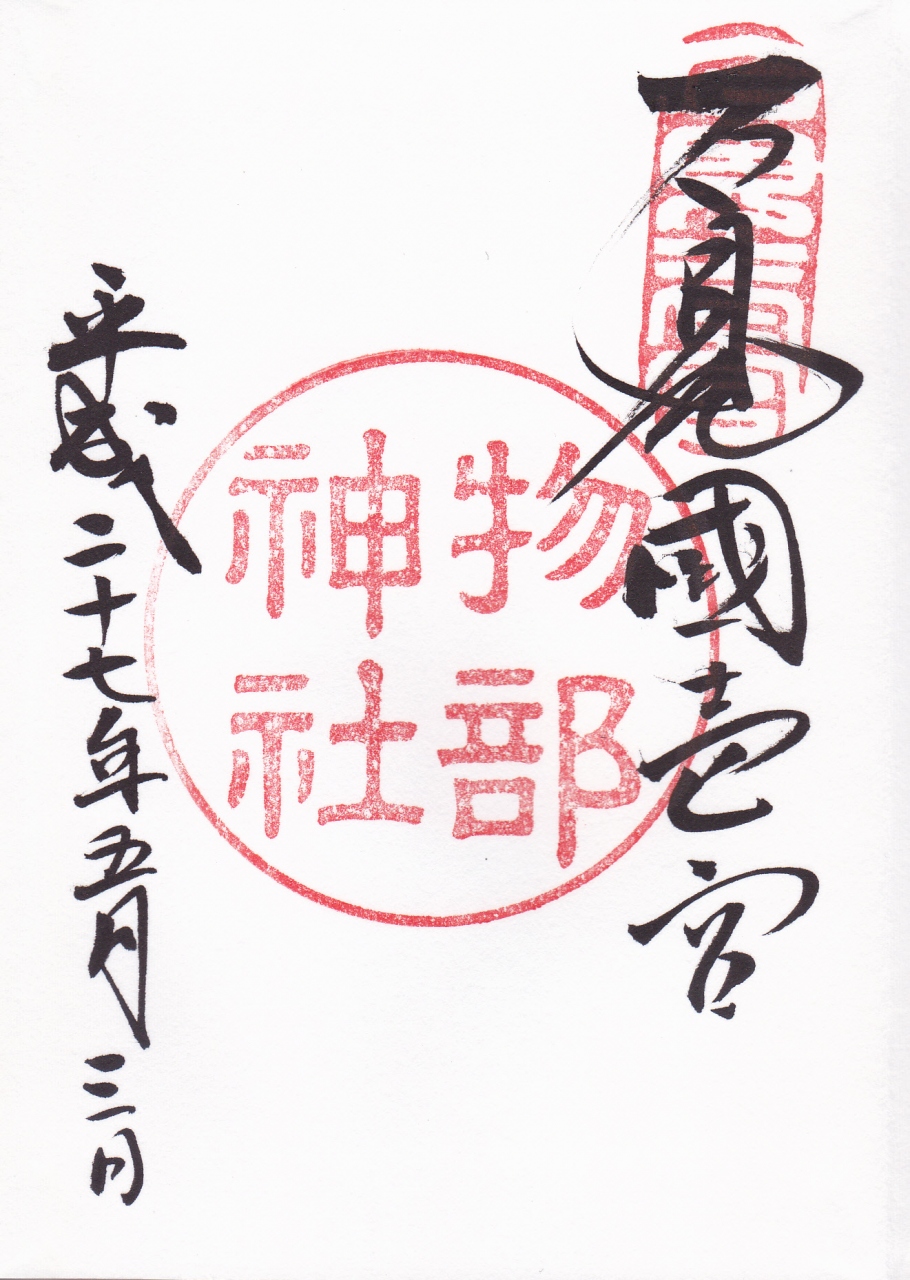 石見國壱宮
物部
神社
平成二十七年五月三日